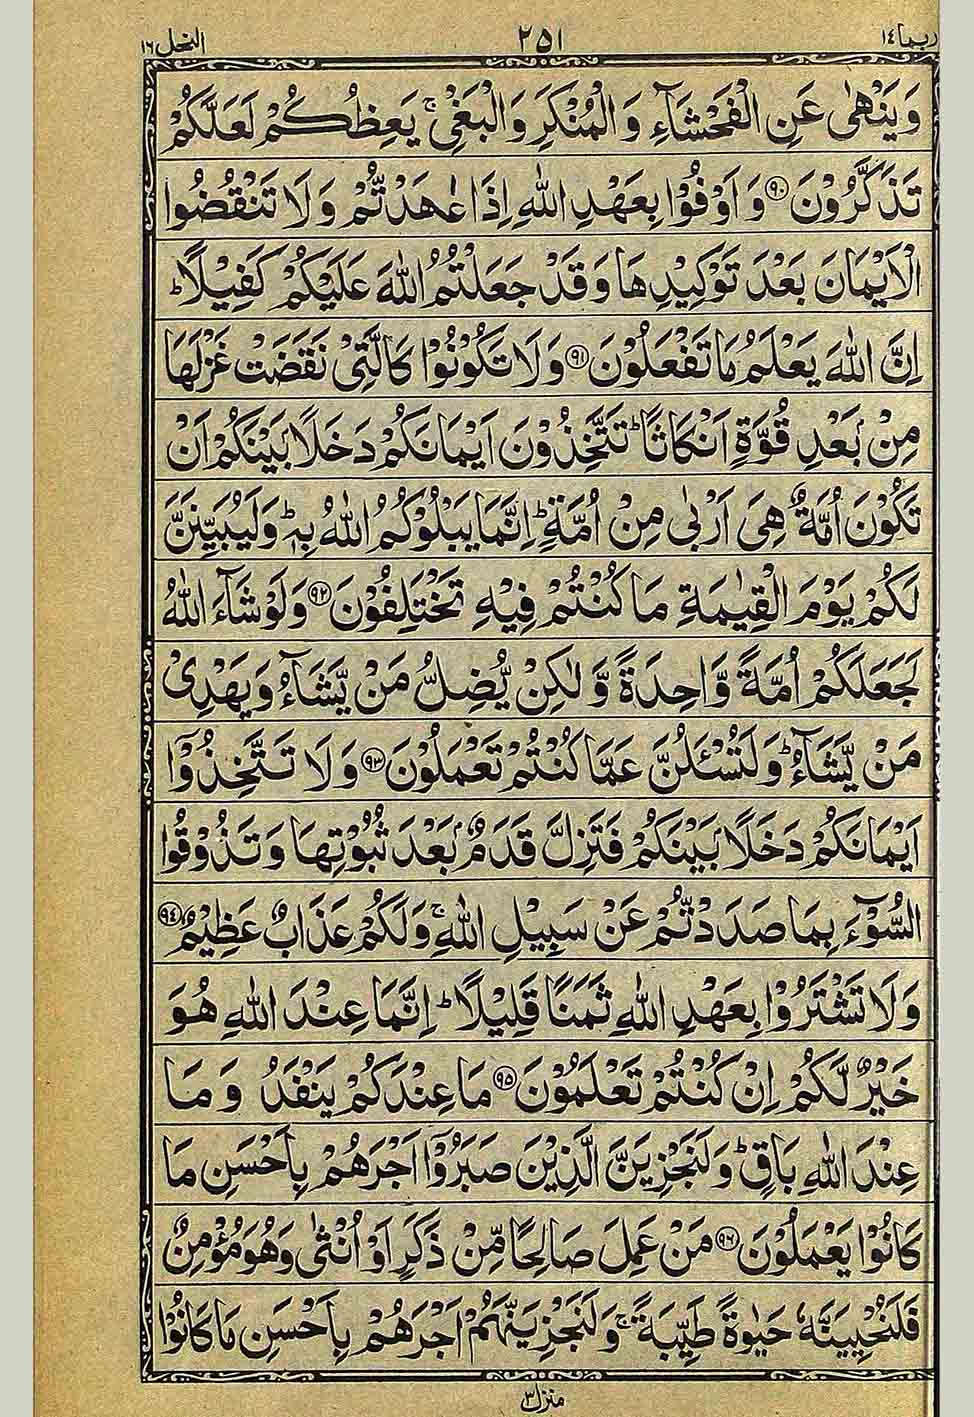 ربما ١٤ ٢٥١ النحل ١٦
وَيَنْهٰى عَنِ الْفَحْشَآءِ وَالْمُنْكَرِ وَالْبَغْيِ ۚ يَعِظُكُمْ لَعَلَّكُمْ
تَذَكَّرُوْنَ ﴿٩٠﴾ وَاَوْفُوْا بِعَهْدِ اللّٰهِ اِذَا عٰهَدْتُّمْ وَلَا تَنْقُضُوا
الْاَيْمَانَ بَعْدَ تَوْكِيْدِهَا وَقَدْ جَعَلْتُمُ اللّٰهَ عَلَيْكُمْ كَفِيْلًا ؕ
اِنَّ اللّٰهَ يَعْلَمُ مَا تَفْعَلُوْنَ ﴿٩١﴾ وَلَا تَكُوْنُوْا كَالَّتِيْ نَقَضَتْ غَزْلَهَا
مِنْۢ بَعْدِ قُوَّةٍ اَنْكَاثًا ؕ تَتَّخِذُوْنَ اَيْمَانَكُمْ دَخَلًاۢ بَيْنَكُمْ اَنْ
تَكُوْنَ اُمَّةٌ هِيَ اَرْبٰى مِنْ اُمَّةٍ ؕ اِنَّمَا يَبْلُوْكُمُ اللّٰهُ بِهٖ ؕ وَلَيُبَيِّنَنَّ
لَكُمْ يَوْمَ الْقِيٰمَةِ مَا كُنْتُمْ فِيْهِ تَخْتَلِفُوْنَ ﴿٩٢﴾ وَلَوْ شَآءَ اللّٰهُ
لَجَعَلَكُمْ اُمَّةً وَّاحِدَةً وَّلٰكِنْ يُّضِلُّ مَنْ يَّشَآءُ وَيَهْدِيْ
مَنْ يَّشَآءُ ؕ وَلَتُسْـَٔلُنَّ عَمَّا كُنْتُمْ تَعْمَلُوْنَ ﴿٩٣﴾ وَلَا تَتَّخِذُوْۤا
اَيْمَانَكُمْ دَخَلًاۢ بَيْنَكُمْ فَتَزِلَّ قَدَمٌۢ بَعْدَ ثُبُوْتِهَا وَتَذُوْقُوا
السُّوْٓءَ بِمَا صَدَدْتُّمْ عَنْ سَبِيْلِ اللّٰهِ ۚ وَلَكُمْ عَذَابٌ عَظِيْمٌ ﴿٩٤﴾
وَلَا تَشْتَرُوْا بِعَهْدِ اللّٰهِ ثَمَنًا قَلِيْلًا ؕ اِنَّمَا عِنْدَ اللّٰهِ هُوَ
خَيْرٌ لَّكُمْ اِنْ كُنْتُمْ تَعْلَمُوْنَ ﴿٩٥﴾ مَا عِنْدَكُمْ يَنْفَدُ وَمَا
عِنْدَ اللّٰهِ بَاقٍ ؕ وَلَنَجْزِيَنَّ الَّذِيْنَ صَبَرُوْۤا اَجْرَهُمْ بِاَحْسَنِ مَا
كَانُوْا يَعْمَلُوْنَ ﴿٩٦﴾ مَنْ عَمِلَ صَالِحًا مِّنْ ذَكَرٍ اَوْ اُنْثٰى وَهُوَ مُؤْمِنٌ
فَلَنُحْيِيَنَّهٗ حَيٰوةً طَيِّبَةً ۚ وَلَنَجْزِيَنَّهُمْ اَجْرَهُمْ بِاَحْسَنِ مَا كَانُوْا
منزل ٣